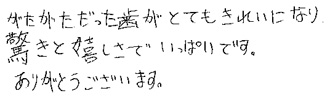 がたがただった歯がとてもきれいになり
驚きと嬉しさでいっぱいです。
ありがとうございます。